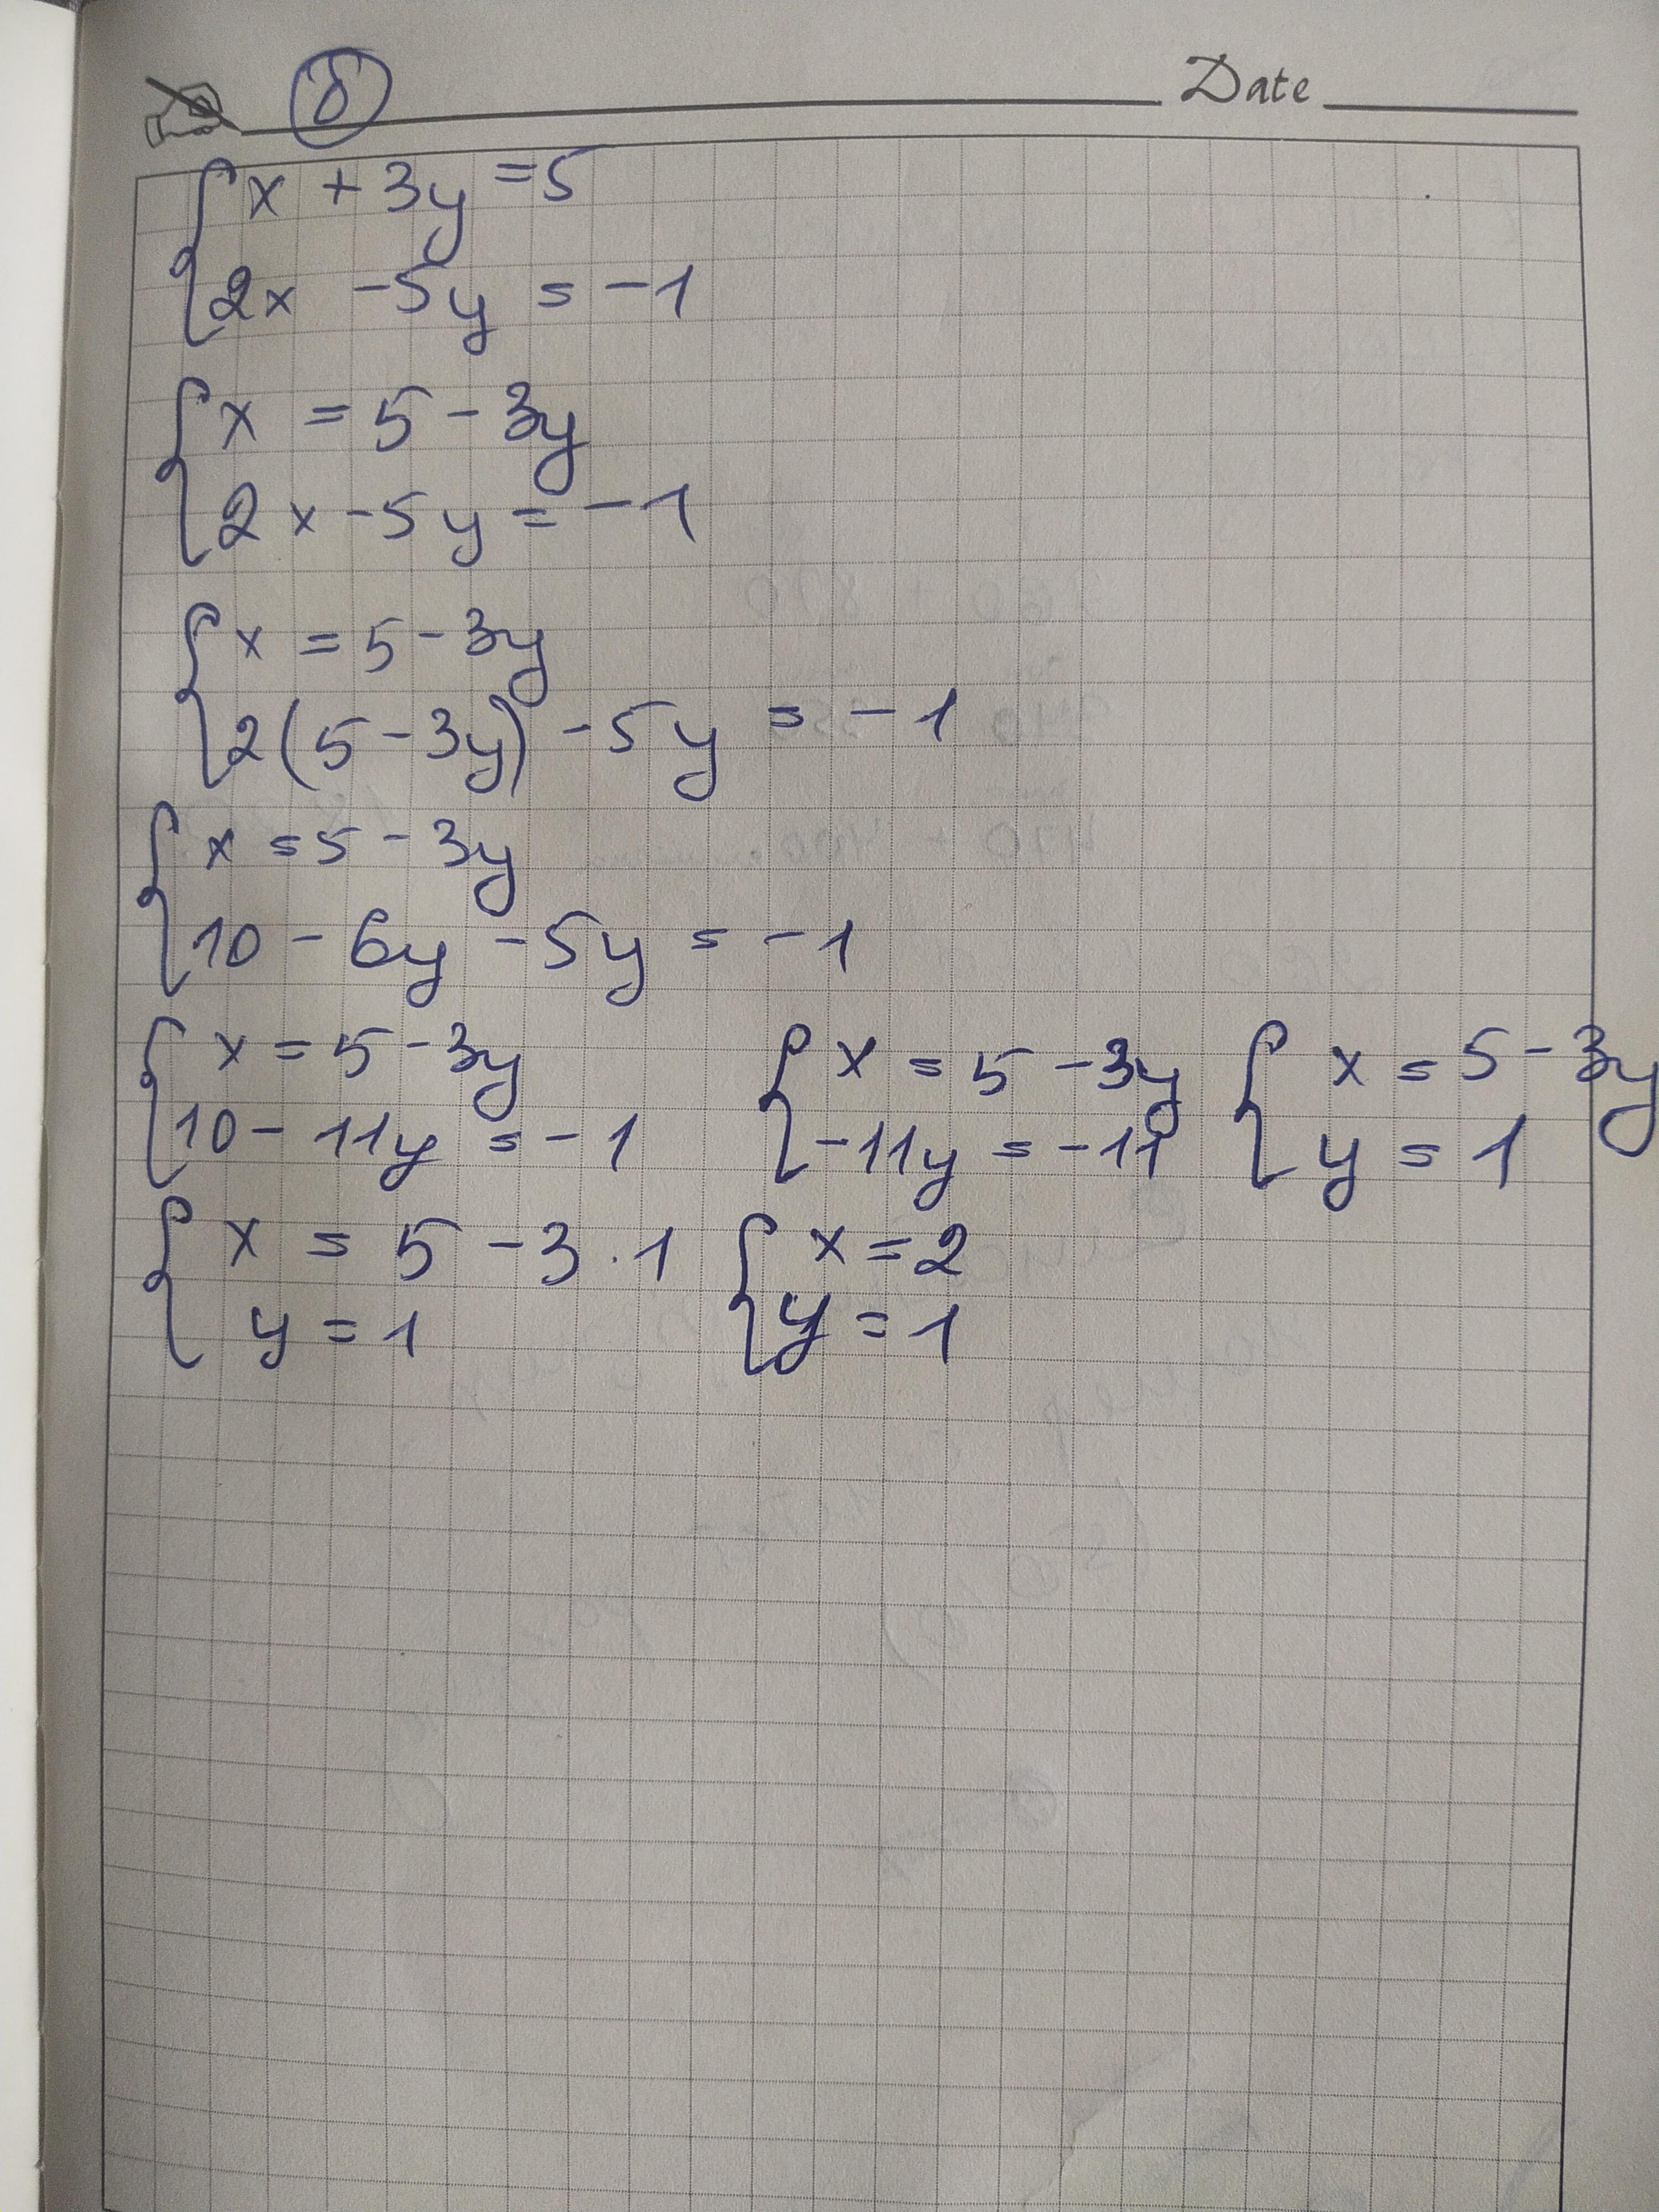 δ Date
x + 3y = 5
2x - 5y = -1
x = 5 - 3y
2x - 5y = -1
x = 5 - 3y
2(5 - 3y) - 5y = -1
x = 5 - 3y
10 - 6y - 5y = -1
x = 5 - 3y x = 5 - 3y x = 5 - 3y
10 - 11y = -1 -11y = -11 y = 1
x = 5 - 3 · 1 x = 2
y = 1 y = 1